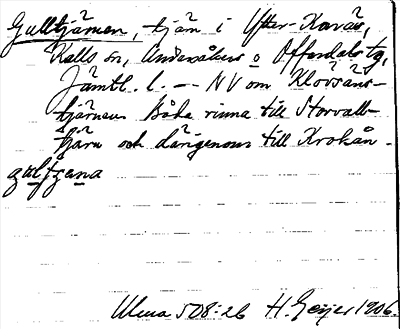 Gulltjärnen, tjärn i Yttre-Kavås,
Kalls sn, Undersåkers o Offerdals tg,
Jämtl. l. — NV om Klovsåns-
tjärnen. Båda rinna till Storvall-
tjärn och därigenom till Krokån.
gultjana
Ulma 508:26 H. Geijer 1906.